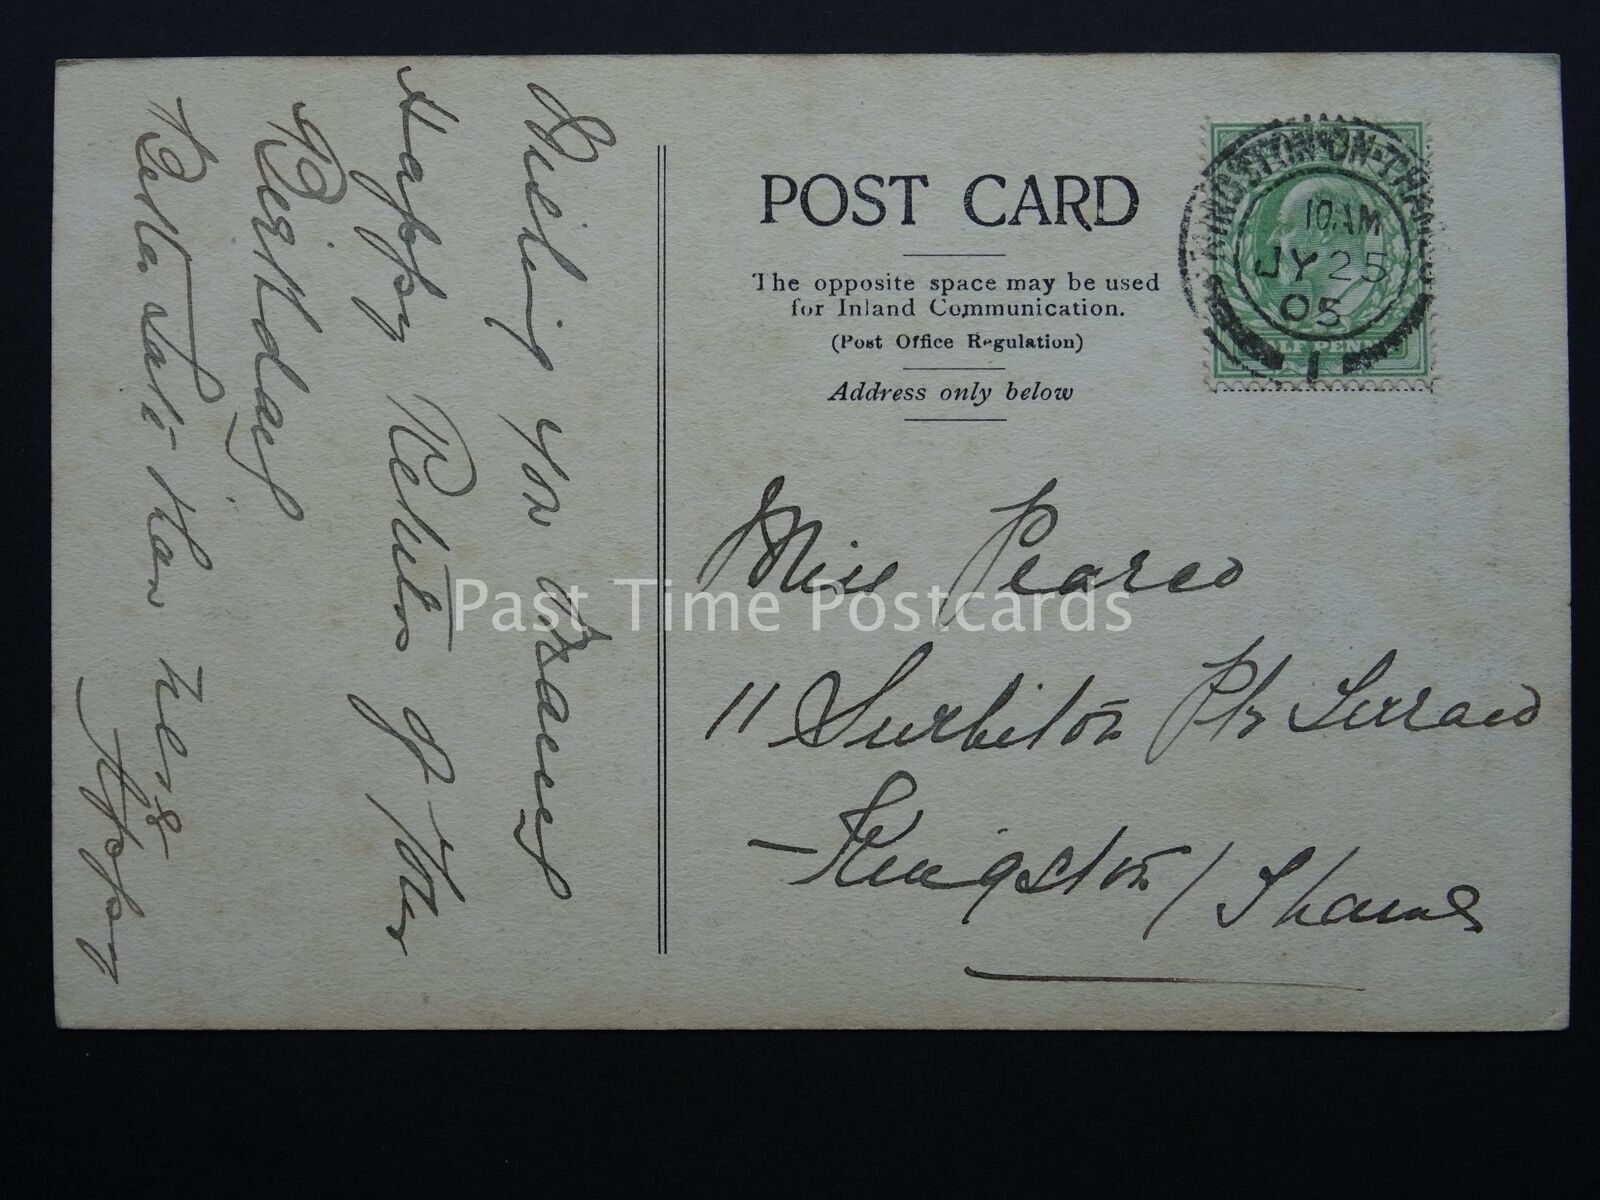 Wishing you Many
Happy Returns of Your
Birthday
Better late than never
POST CARD
The opposite space may be used
for Inland Communication.
(Post Office Regulation)
Address only below
KINGSTON-ON-THAMES
10.AM
JY 25
05
1
HALF PENNY
Miss Pearce
11 Surbiton Pk Terrace
Kingston / Thames
Past Time Postcards